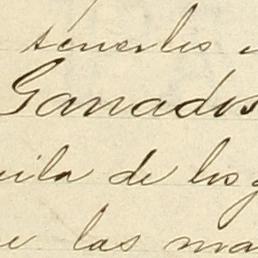 tenerlos
Ganados
uila de los g
e las ma